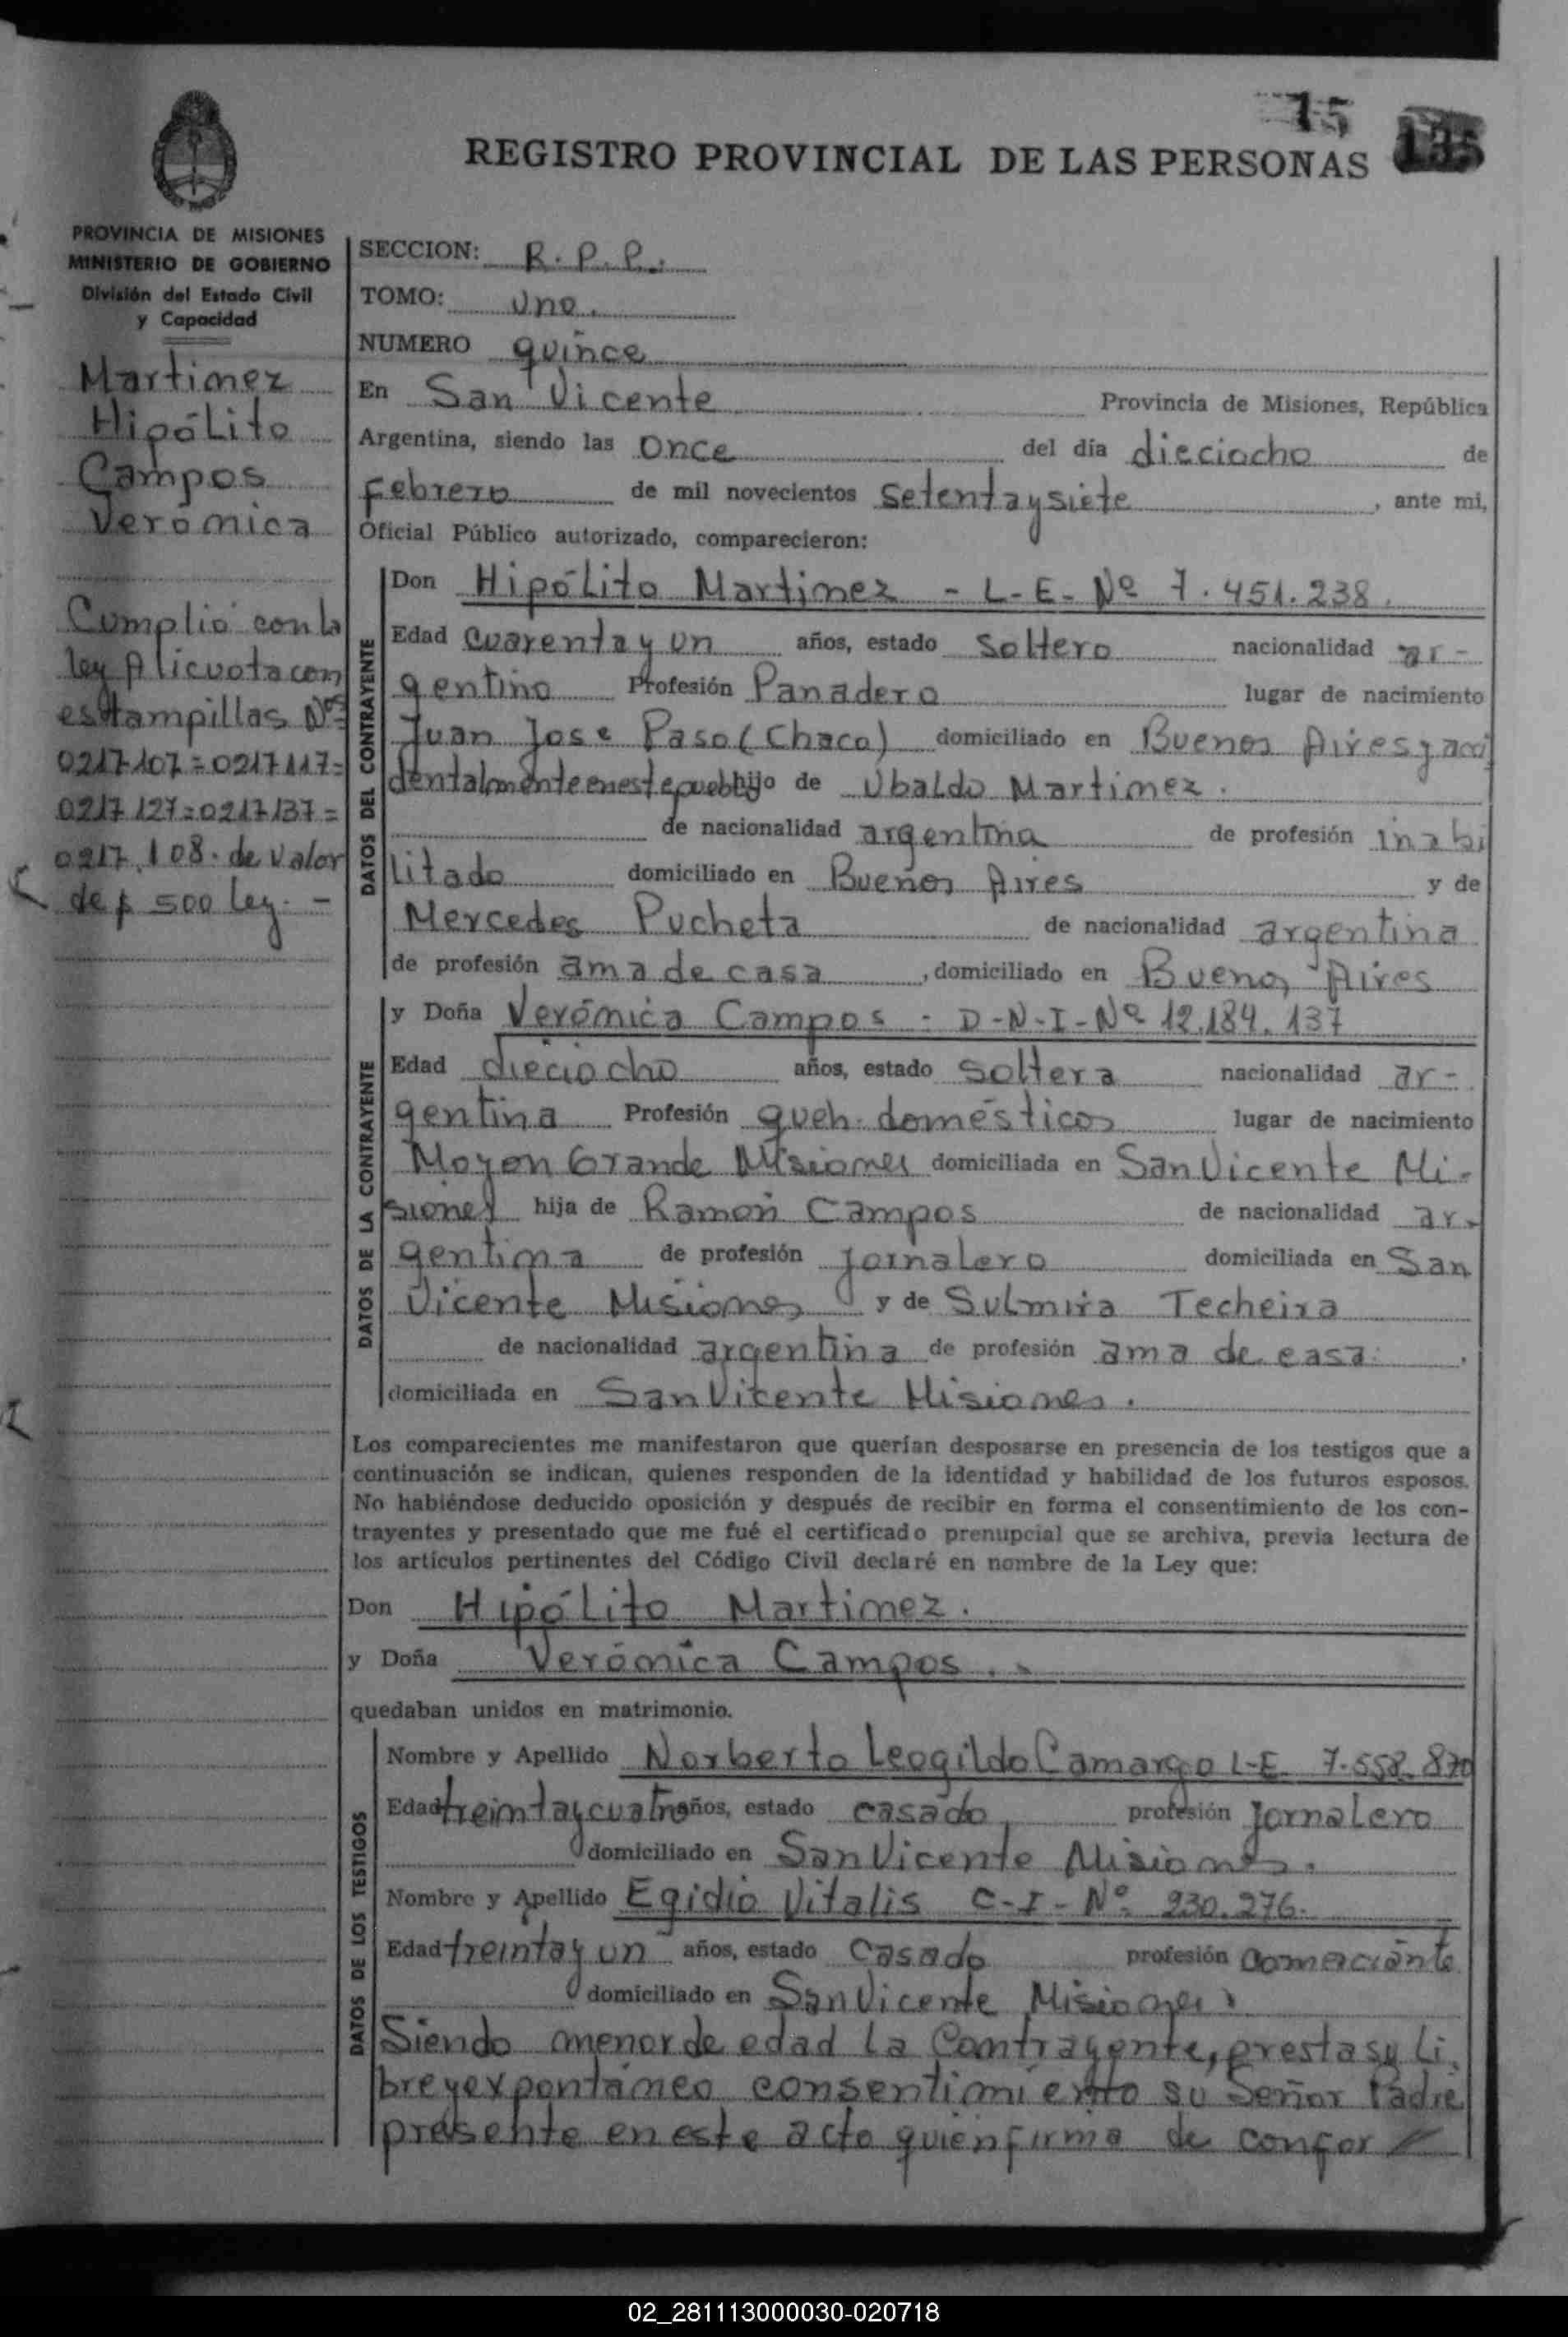 15
135
REGISTRO PROVINCIAL DE LAS PERSONAS
PROVINCIA DE MISIONES
MINISTERIO DE GOBIERNO
División del Estado Civil
y Capacidad
Martinez
Hipólito
Campos
Verónica
Cumplió con la
ley Alicuota con
estampillas Nos
0217107=0217117=
0217127=0217137=
0217.108. de valor
de $ 500 ley. -
SECCION: R. P. P.
TOMO: Uno.
NUMERO quince
En San Vicente Provincia de Misiones, República
Argentina, siendo las once del día dieciocho de
Febrero de mil novecientos setentaysiete, ante mi,
Oficial Público autorizado, comparecieron:
DATOS DEL CONTRAYENTE
Don Hipólito Martinez - L-E- Nº 7.451.238.
Edad cuarenta y un años, estado soltero nacionalidad ar-
gentino Profesión Panadero lugar de nacimiento
Juan Jose Paso (Chaco) domiciliado en Buenos Aires y acci
dentalmente en este pueblo hijo de Ubaldo Martinez.
de nacionalidad argentina de profesión inabi
litado domiciliado en Buenos Aires y de
Mercedes Pucheta de nacionalidad argentina
de profesión ama de casa, domiciliado en Buenos Aires
DATOS DE LA CONTRAYENTE
y Doña Verónica Campos - D-N-I-Nº 12.184.137
Edad dieciocho años, estado soltera nacionalidad ar-
gentina Profesión queh. domésticos lugar de nacimiento
Moyon Grande Misiones domiciliada en San Vicente Mi-
siones hija de Ramón Campos de nacionalidad ar-
gentina de profesión jornalero domiciliada en San
Vicente Misiones y de Sulmira Techeira
de nacionalidad argentina de profesión ama de casa.
domiciliada en San Vicente Misiones.
Los comparecientes me manifestaron que querían desposarse en presencia de los testigos que a
continuación se indican, quienes responden de la identidad y habilidad de los futuros esposos.
No habiéndose deducido oposición y después de recibir en forma el consentimiento de los con-
trayentes y presentado que me fué el certificado prenupcial que se archiva, previa lectura de
los artículos pertinentes del Código Civil declaré en nombre de la Ley que:
Don Hipólito Martinez.
y Doña Verónica Campos.
quedaban unidos en matrimonio.
DATOS DE LOS TESTIGOS
Nombre y Apellido Norberto Leogildo Camargo L-E 7.558.870
Edad treintaycuatro años, estado casado profesión jornalero
domiciliado en San Vicente Misiones.
Nombre y Apellido Egidio Vitalis C-I- Nº 230.276.
Edad treintayun años, estado casado profesión comerciante
domiciliado en San Vicente Misiones
Siendo menor de edad la Contrayente, presta su li-
bre y expontáneo consentimiento su Señor Padre
presente en este acto quien firma de confor
02_281113000030-020718